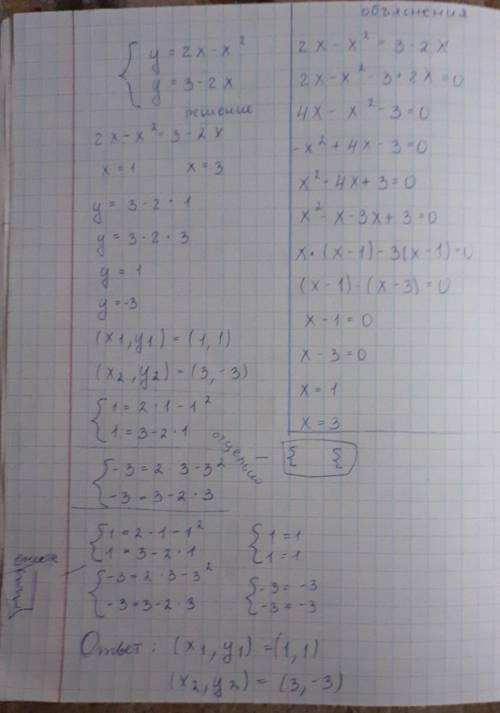 y = 2x - x²
y = 3 - 2x
решение
2x - x² = 3 - 2x
x = 1 x = 3
y = 3 - 2 · 1
y = 3 - 2 · 3
y = 1
y = -3
(x₁, y₁) = (1, 1)
(x₂, y₂) = (3, -3)
1 = 2 · 1 - 1²
1 = 3 - 2 · 1
-3 = 2 · 3 - 3²
-3 = 3 - 2 · 3
1 = 2 · 1 - 1²
1 = 3 - 2 · 1
1 = 1
1 = 1
-3 = 2 · 3 - 3²
-3 = 3 - 2 · 3
-3 = -3
-3 = -3
Ответ: (x₁, y₁) = (1, 1)
(x₂, y₂) = (3, -3)
объяснения
2x - x² = 3 - 2x
2x - x² - 3 + 2x = 0
4x - x² - 3 = 0
-x² + 4x - 3 = 0
x² - 4x + 3 = 0
x² - x - 3x + 3 = 0
x · (x - 1) - 3(x - 1) = 0
(x - 1) · (x - 3) = 0
x - 1 = 0
x - 3 = 0
x = 1
x = 3
{ {